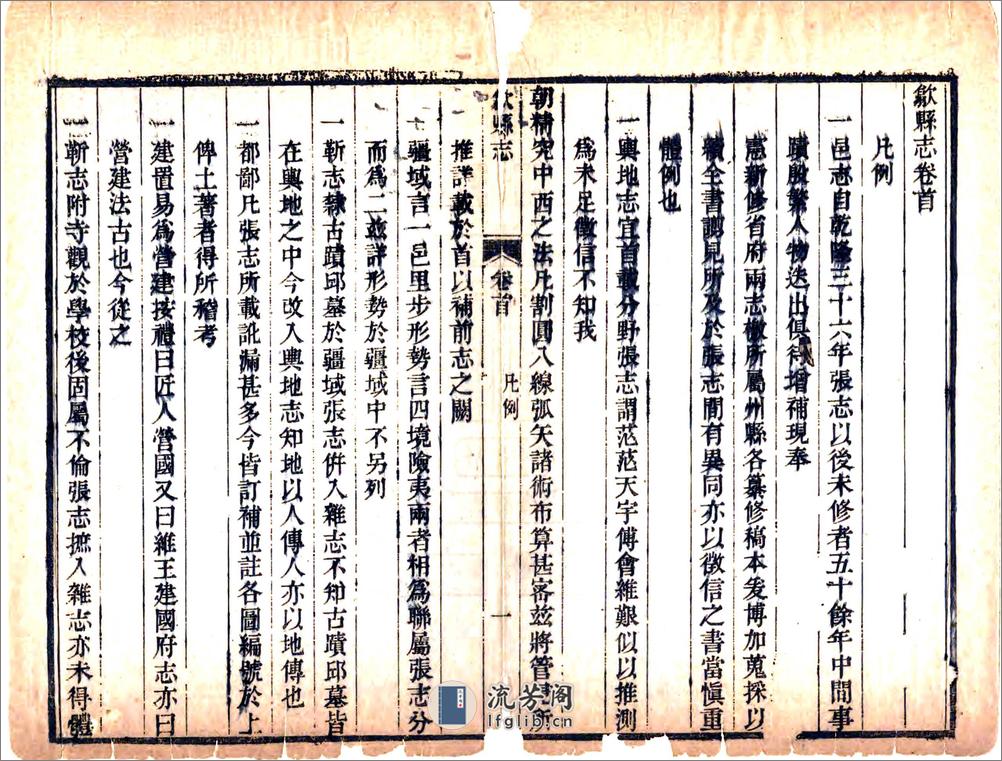 歙縣志卷首
凡例
一邑志自乾隆三十六年張志以後未修者五十餘年中間事
蹟殷繁人物迭出俱待增補現奉
憲新修省府兩志檄所屬州縣各纂修稿本爰博加蒐採以
續全書謭見所及於張志間有異同亦以徵信之書當慎重
體例也
一輿地志宜首載分野張志謂茫茫天宇傅會維艱似以推測
為未足徵信不知我
朝精究中西之法凡割圓八線弧矢諸術布算甚審茲將管
推詳載於首以補前志之闕
一疆域言一邑里步形勢言四境險夷兩者相為聯屬張志分
而為二茲詳形勢於疆域中不另列
一靳志隸古蹟邱墓於疆域張志併入雜志不知古蹟邱墓皆
在輿地之中今改入輿地志知地以人傳人亦以地傳也
一都鄙凡張志所載訛漏甚多今皆訂補並註各圖編號於上
俾土著者得所稽考
一建置易為營建按禮曰匠人營國又曰維王建國府志亦曰
營建法古也今從之
一靳志附寺觀於學校後固屬不倫張志摭入雜志亦未得體
歙縣志
卷首
凡例
一
流芳阁
lfglib.cn